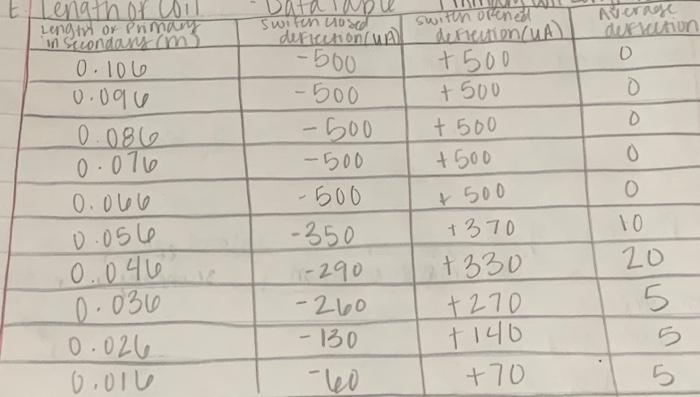 E. Length of Coil - Data Table
Length of Primary in Secondary (m) | switch closed deflection (uA) | switch opened deflection (uA) | Average deflection
0.106 | -500 | +500 | 0
0.096 | -500 | +500 | 0
0.086 | -500 | +500 | 0
0.076 | -500 | +500 | 0
0.066 | -500 | +500 | 0
0.056 | -350 | +370 | 10
0.046 | -290 | +330 | 20
0.036 | -260 | +270 | 5
0.026 | -130 | +140 | 5
0.016 | -60 | +70 | 5